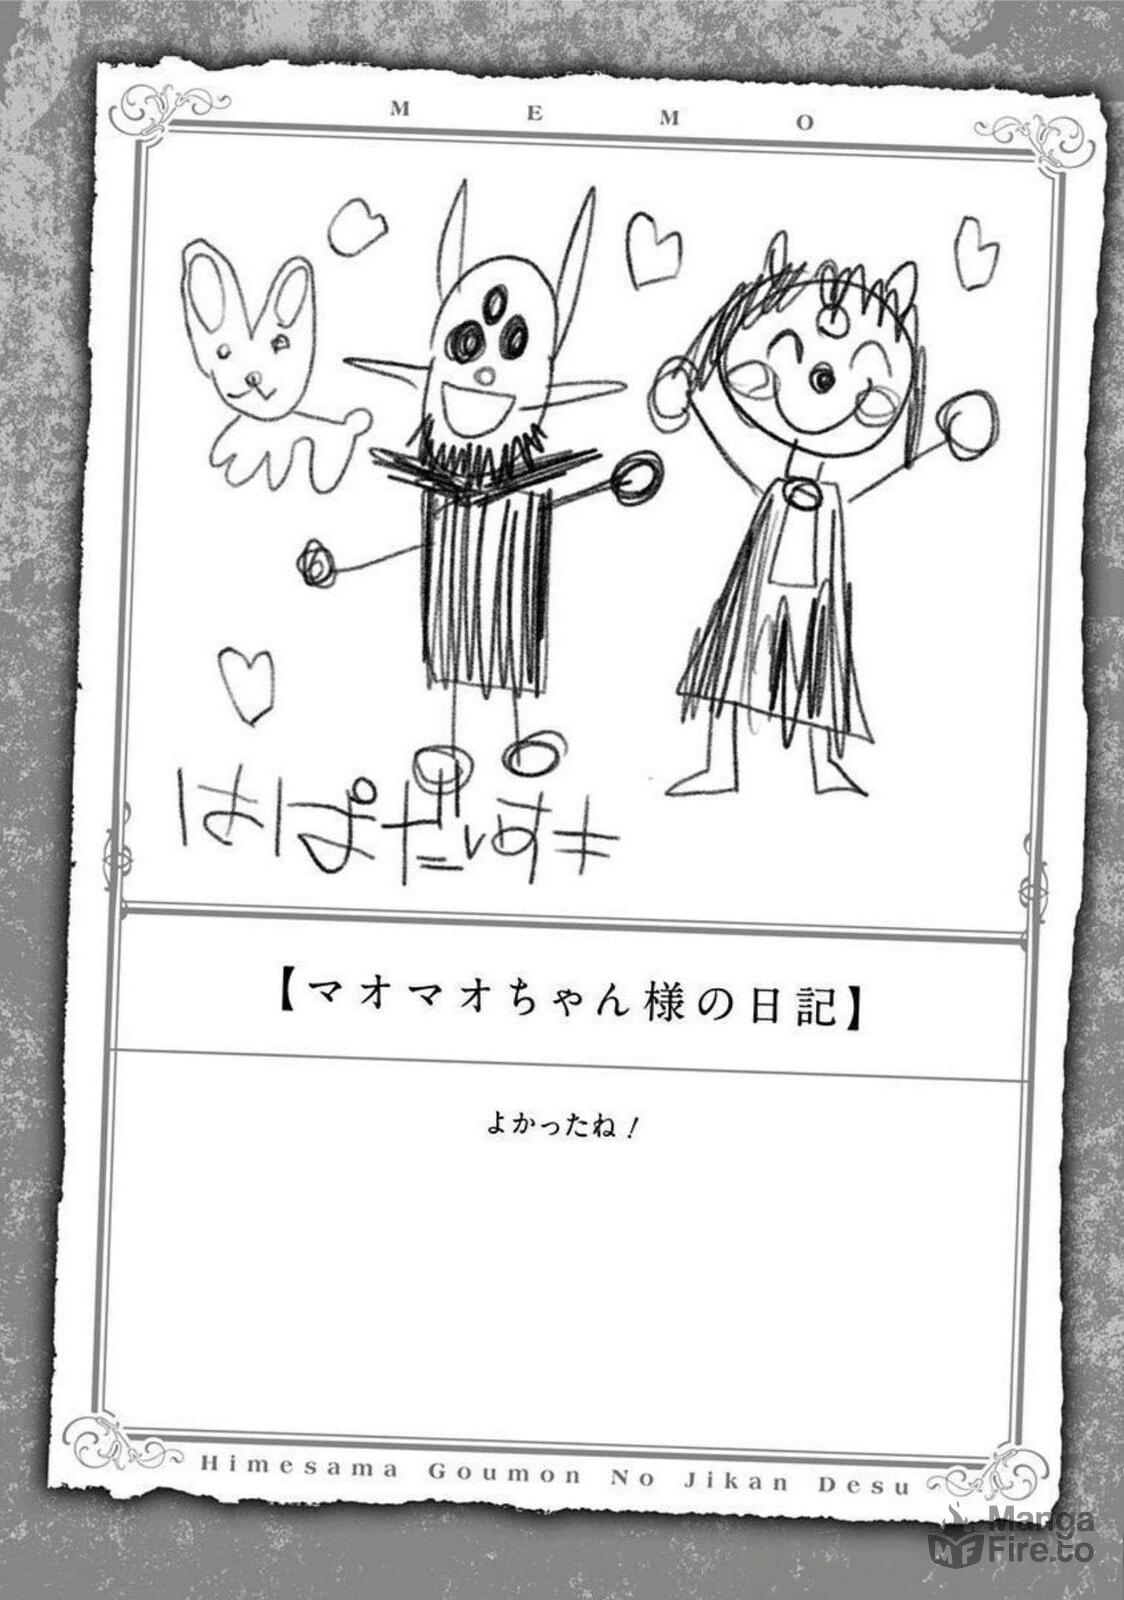 MEMO
はぱだいすき
【マオマオちゃん様の日記】
よかったね！
Himesama Goumon No Jikan Desu
MangaFire.to
MF